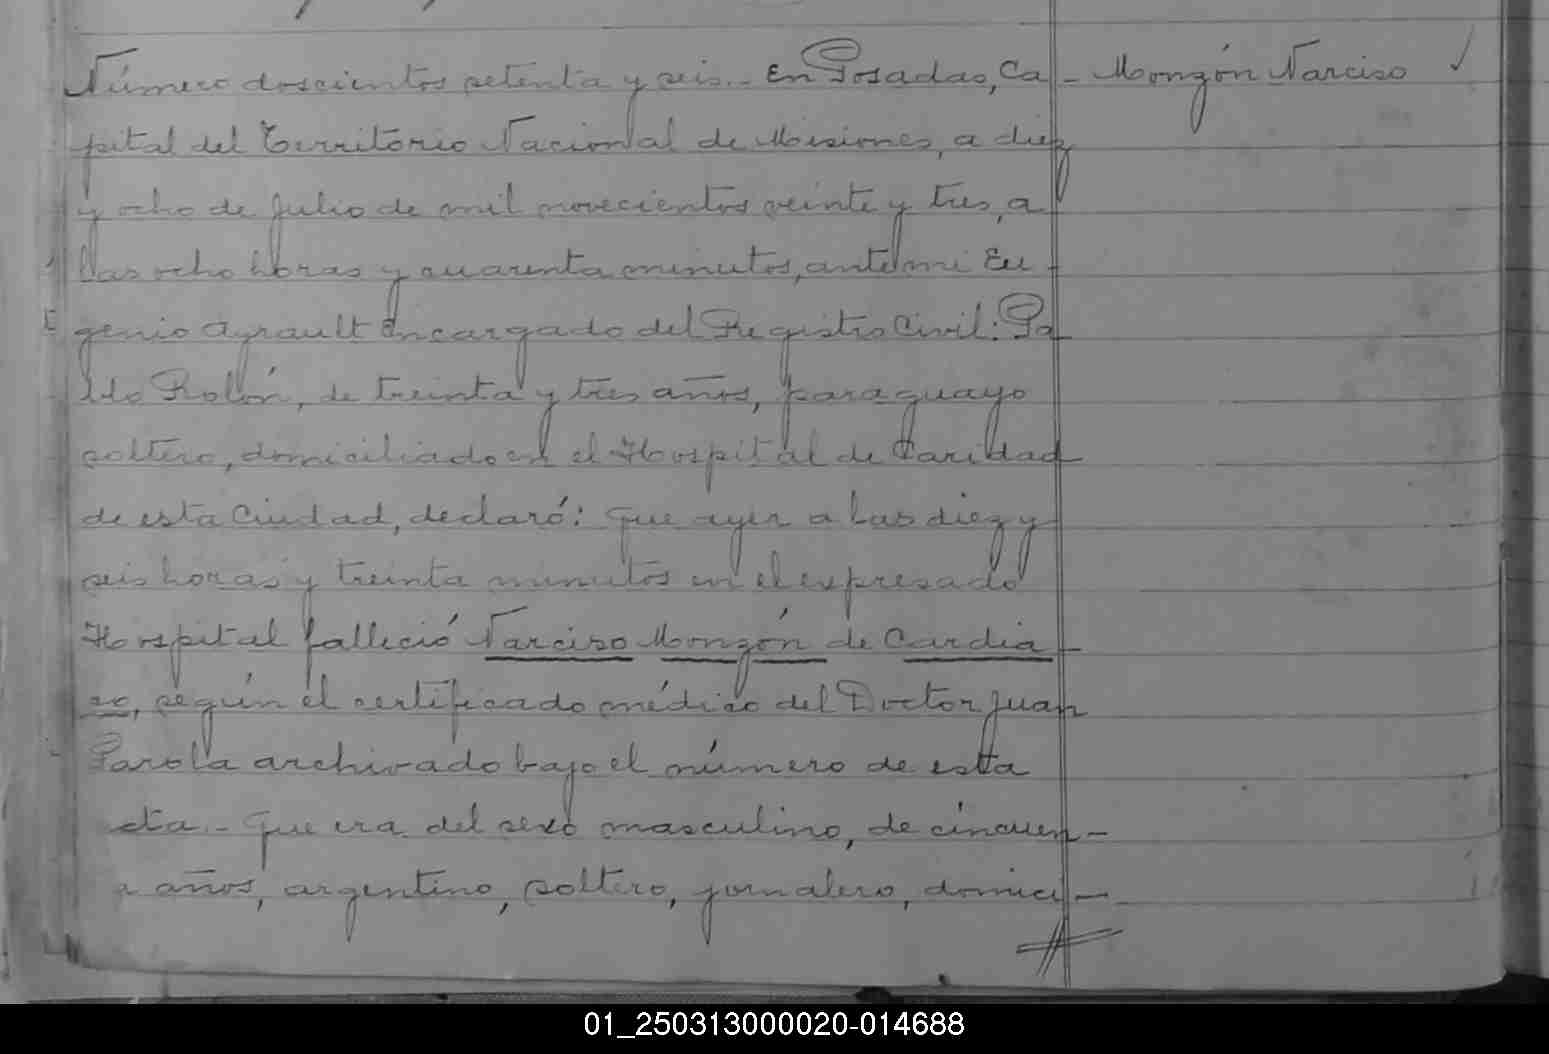 Número doscientos setenta y seis.- En Posadas, Ca- Monzón Narciso
pital del Territorio Nacional de Misiones, a diez
y ocho de Julio de mil novecientos veinte y tres, a
las ocho horas y cuarenta minutos, ante mi Eu-
genio Ayrault Encargado del Registro Civil: Pa
blo Rolón, de treinta y tres años, paraguayo
soltero, domiciliado en el Hospital de Caridad
de esta Ciudad, declaró: Que ayer a las diez y
seis horas y treinta minutos en el expresado
Hospital falleció Narciso Monzón de Cardia-
co, según el certificado médico del Doctor Juan
Parola archivado bajo el número de esta
cta.- Que era del sexo masculino, de cincuen-
a años, argentino, soltero, jornalero, domici-
01_250313000020-014688